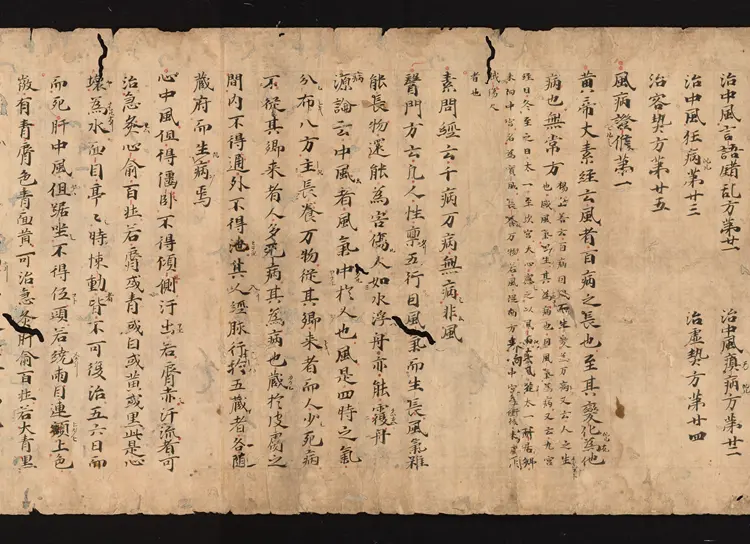 治中風言語錯乱方第廿一　治中風癲病方第廿二
治中風狂病第廿三　治虚熱方第廿四
治客熱方第廿五
風病證候第一
黄帝大素経云風者百病之長也至其變化為他
病也無常方
素問經云千病万病無病非風
醫門方云凡人性稟五行因風氣而生長風氣雖
能長物還能為害傷人如水浮舟亦能覆舟
病源論云中風者風氣中於人也風是四時之氣
分布八方主長養万物従其郷来者而人少死病
不従其郷来者人多死病其為病也蔵於皮膚之
間内不得通外不得泄其入經脉行於五蔵者各隨
蔵府而生病焉
心中風但得偃臥不得傾側汗出若脣赤汗流者可
治急灸心俞百壮若脣或青或白或黄或黒此是心
壊為水面目亭〻時悚動皆不可復治五六日而
而死肝中風但踞坐不得伍頭若繞兩目連額上色
微有青脣色青面黄可治急灸肝俞百壮若大青黒